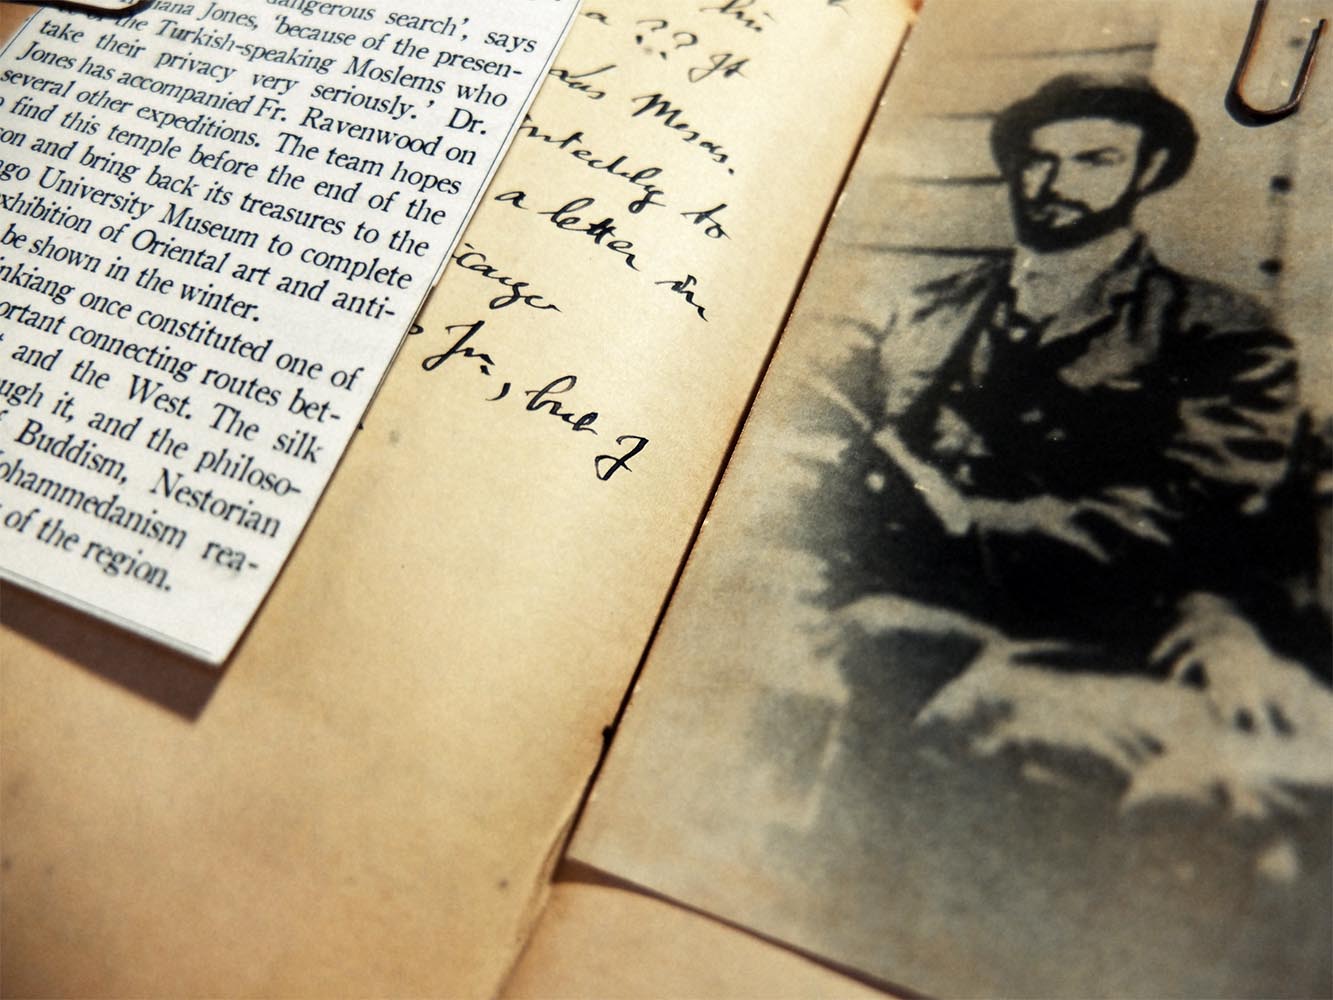 dangerous search', says
Jones, 'because of the presen-
the Turkish-speaking Moslems who
take their privacy very seriously.' Dr.
Jones has accompanied Fr. Ravenwood on
several other expeditions. The team hopes
find this temple before the end of the
son and bring back its treasures to the
ago University Museum to complete
exhibition of Oriental art and anti-
be shown in the winter.
nkiang once constituted one of
ortant connecting routes bet-
and the West. The silk
ugh it, and the philoso-
Buddism, Nestorian
ohammedanism rea-
of the region.
him
a ?? It
Las Mesas.
to
a letter in
icago
Jr., but I